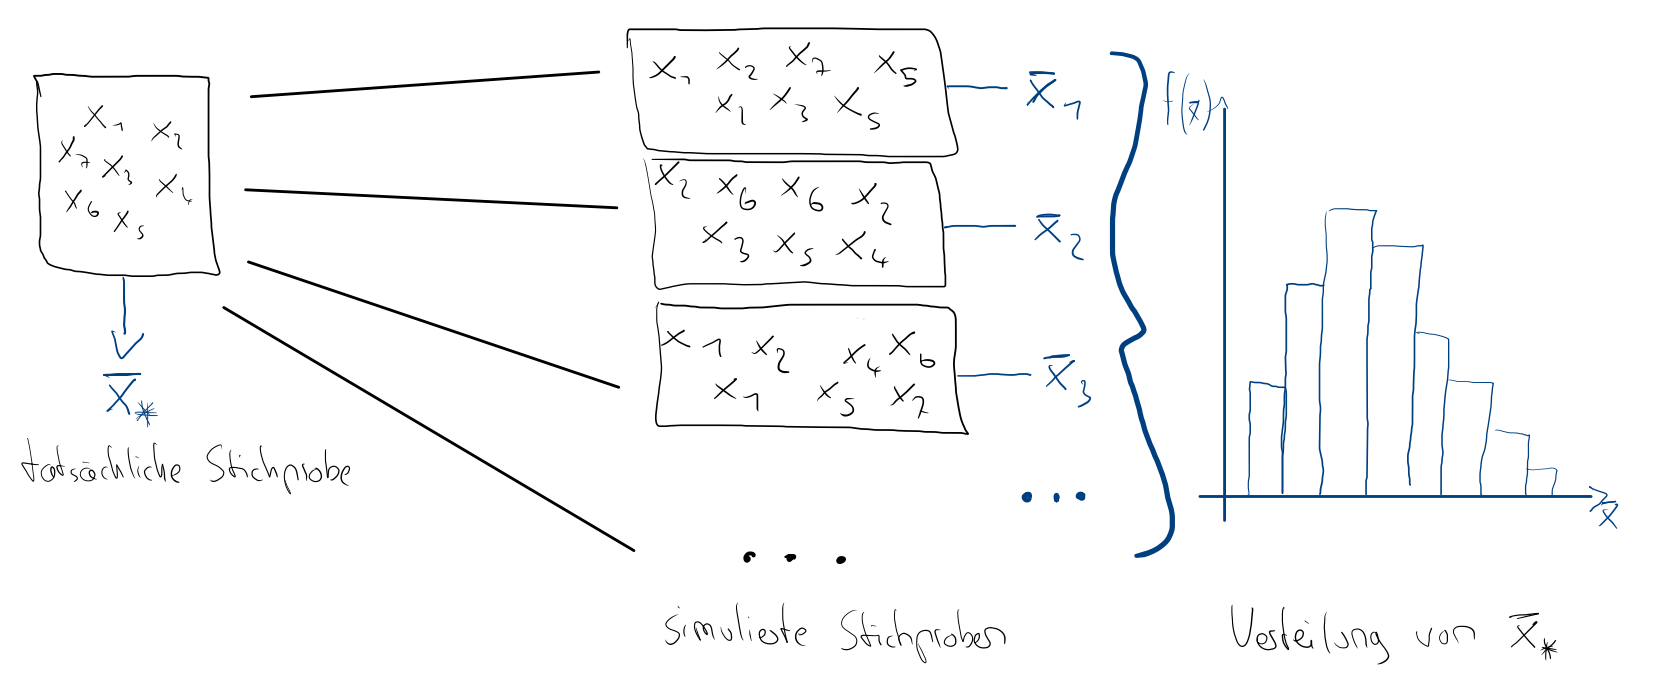 x₁ x₂
x₇ x₃ x₄
x₆ x₅
x̄*
tatsächliche Stichprobe
x₁ x₂ x₇ x₅
x₁ x₃ x₅
x̄₁
x₂ x₆ x₆ x₂
x₃ x₅ x₄
x̄₂
x₁ x₂ x₄ x₆
x₁ x₅ x₇
x̄₃
...
...
simulierte Stichproben
f(x̄)
x̄
Verteilung von x̄*